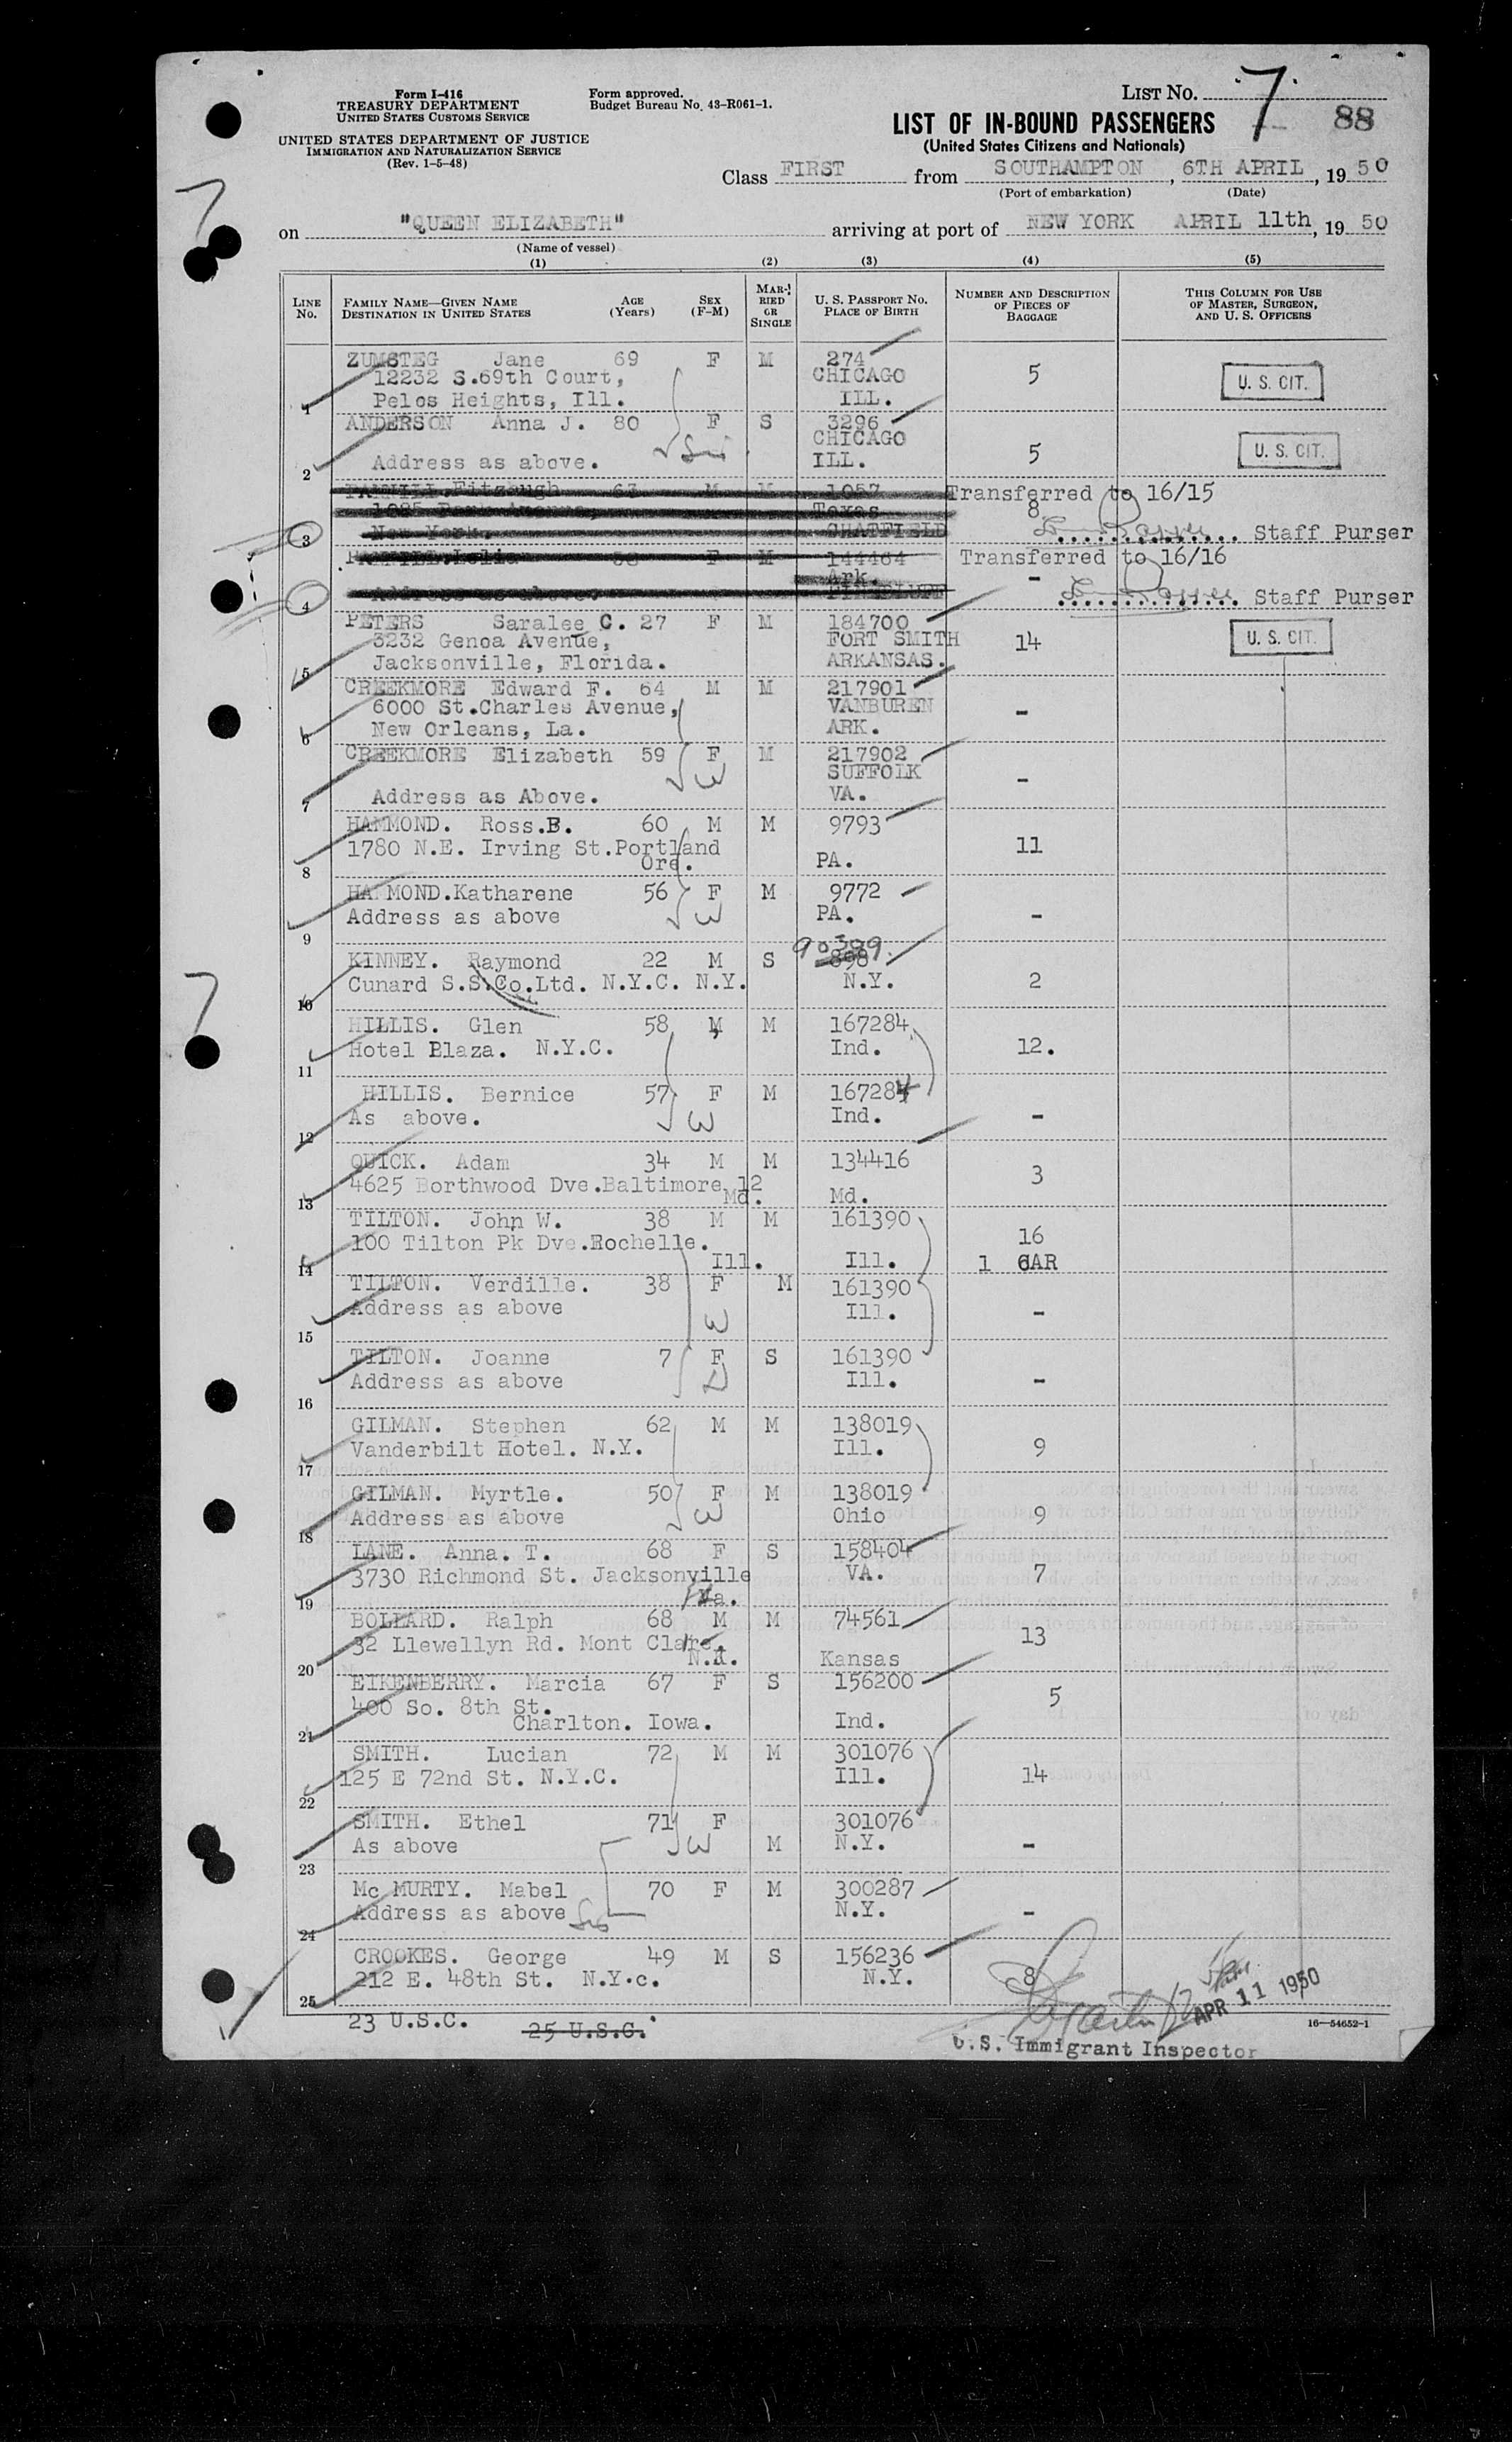 Form I-416
TREASURY DEPARTMENT
UNITED STATES CUSTOMS SERVICE
UNITED STATES DEPARTMENT OF JUSTICE
IMMIGRATION AND NATURALIZATION SERVICE
(Rev. 1-5-48)
Form approved.
Budget Bureau No. 43-R061-1.
LIST NO. 7
88
LIST OF IN-BOUND PASSENGERS
(United States Citizens and Nationals)
Class FIRST from SOUTHAMPTON, 6TH APRIL, 1950
(Port of embarkation) (Date)
on "QUEEN ELIZABETH" arriving at port of NEW YORK APRIL 11th, 1950
(Name of vessel)
(1) (2) (3) (4) (5)
LINE NO. FAMILY NAME—GIVEN NAME DESTINATION IN UNITED STATES AGE (Years) SEX (F-M) MARRIED OR SINGLE U. S. PASSPORT NO. PLACE OF BIRTH NUMBER AND DESCRIPTION OF PIECES OF BAGGAGE THIS COLUMN FOR USE OF MASTER, SURGEON, AND U. S. OFFICERS
ZUMSTEG Jane 69 F M 274
12232 S.69th Court, CHICAGO 5 U. S. CIT.
1 Pelos Heights, Ill. ILL.
ANDERSON Anna J. 80 F S 3296
CHICAGO
2 Address as above. Sis ILL. 5 U. S. CIT.
Fitzhugh 63 M M 1057 Transferred to 16/15
Texas 8
3 New York. CHATFIELD Staff Purser
Lelia F M 144464 Transferred to 16/16
Ark. -
4 Address as above. PINE BLUFF Staff Purser
PETERS Saralee C. 27 F M 184700
3232 Genoa Avenue, FORT SMITH 14 U. S. CIT.
5 Jacksonville, Florida. ARKANSAS.
CREEKMORE Edward F. 64 M M 217901
6000 St.Charles Avenue, VANBUREN -
6 New Orleans, La. ARK.
CREEKMORE Elizabeth 59 F M 217902
W SUFFOLK -
7 Address as Above. VA.
HAMMOND. Ross.B. 60 M M 9793
1780 N.E. Irving St.Portland 11
8 Ore. PA.
HAMMOND.Katharene 56 F M 9772
Address as above W PA. -
9
90399
KINNEY. Raymond 22 M S 898
10 Cunard S.S.Co.Ltd. N.Y.C. N.Y. N.Y. 2
HILLIS. Glen 58 M M 167284
Hotel Plaza. N.Y.C. Ind. 12.
11
HILLIS. Bernice 57 F M 167284
As above. W Ind. -
12
QUICK. Adam 34 M M 134416
4625 Borthwood Dve.Baltimore 12 3
13 Md. Md.
TILTON. John W. 38 M M 161390
100 Tilton Pk Dve.Rochelle. 16
14 Ill. Ill. 1 CAR
TILTON. Verdille. 38 F M 161390
Address as above W Ill. -
15
TILTON. Joanne 7 F S 161390
Address as above D Ill. -
16
GILMAN. Stephen 62 M M 138019
Vanderbilt Hotel. N.Y. Ill. 9
17
GILMAN. Myrtle. 50 F M 138019
Address as above W Ohio 9
18
LANE. Anna. T. 68 F S 158404
3730 Richmond St. Jacksonville VA. 7
19 Fla.
BOLLARD. Ralph 68 M M 74561
32 Llewellyn Rd. Mont Clare. 13
20 N.J. Kansas
EIKENBERRY. Marcia 67 F S 156200
400 So. 8th St. 5
21 Charlton. Iowa. Ind.
SMITH. Lucian 72 M M 301076
125 E 72nd St. N.Y.C. Ill. 14
22
SMITH. Ethel 71 F 301076
As above W M N.Y. -
23
Mc MURTY. Mabel 70 F M 300287
Address as above Sis N.Y. -
24
CROOKES. George 49 M S 156236
212 E. 48th St. N.Y.c. N.Y. 8
25
23 U.S.C. 25 U.S.C.
APR 11 1950
16—54652-1
U.S. Immigrant Inspector